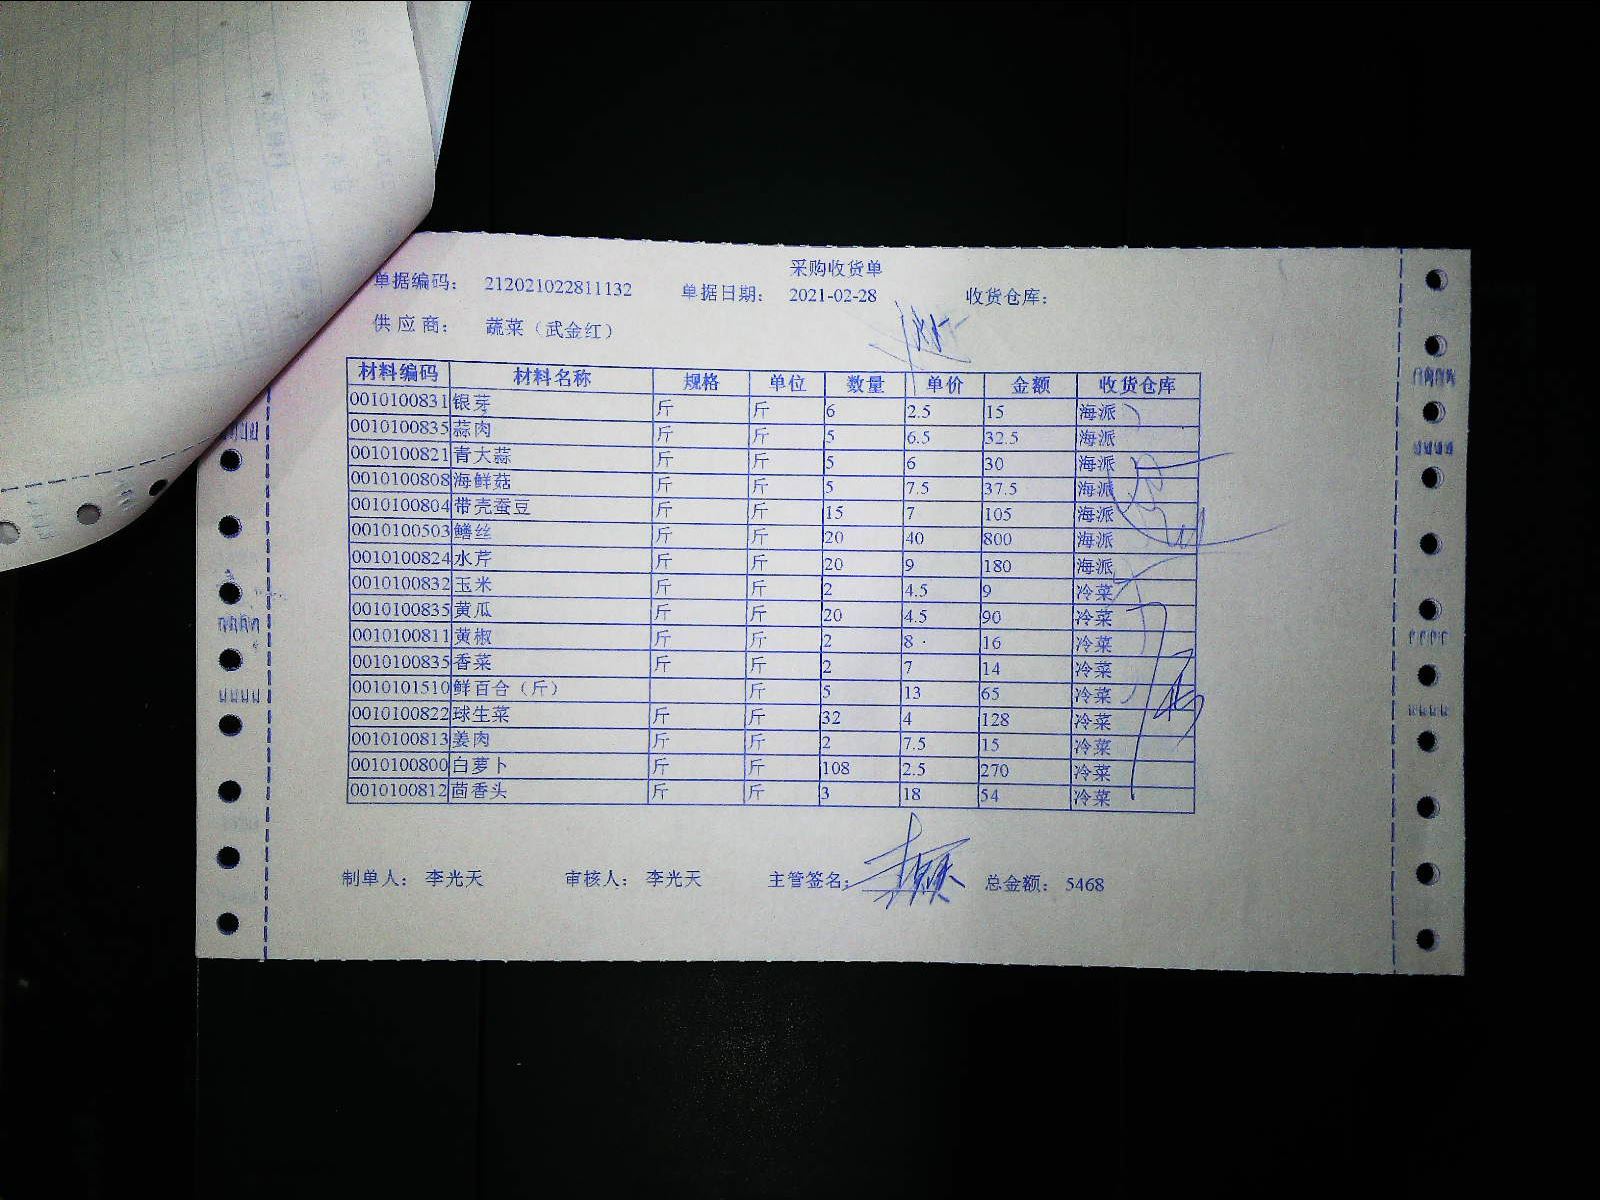 采购收货单
单据编码： 212021022811132 单据日期： 2021-02-28 收货仓库：
供应商： 蔬菜（武金红）
材料编码 材料名称 规格 单位 数量 单价 金额 收货仓库
0010100831 银芽 斤 斤 6 2.5 15 海派
0010100835 蒜肉 斤 斤 5 6.5 32.5 海派
0010100821 青大蒜 斤 斤 5 6 30 海派
0010100808 海鲜菇 斤 斤 5 7.5 37.5 海派
0010100804 带壳蚕豆 斤 斤 15 7 105 海派
0010100503 鳝丝 斤 斤 20 40 800 海派
0010100824 水芹 斤 斤 20 9 180 海派
0010100832 玉米 斤 斤 2 4.5 9 冷菜
0010100835 黄瓜 斤 斤 20 4.5 90 冷菜
0010100811 黄椒 斤 斤 2 8 16 冷菜
0010100835 香菜 斤 斤 2 7 14 冷菜
0010101510 鲜百合（斤） 斤 5 13 65 冷菜
0010100822 球生菜 斤 斤 32 4 128 冷菜
0010100813 姜肉 斤 斤 2 7.5 15 冷菜
0010100800 白萝卜 斤 斤 108 2.5 270 冷菜
0010100812 茴香头 斤 斤 3 18 54 冷菜
制单人： 李光天 审核人： 李光天 主管签名： 总金额： 5468